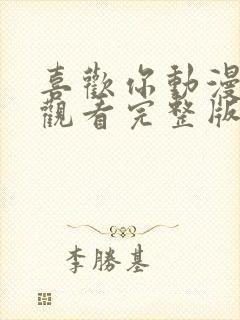 喜歡你動漫
觀看完整版
李勝基